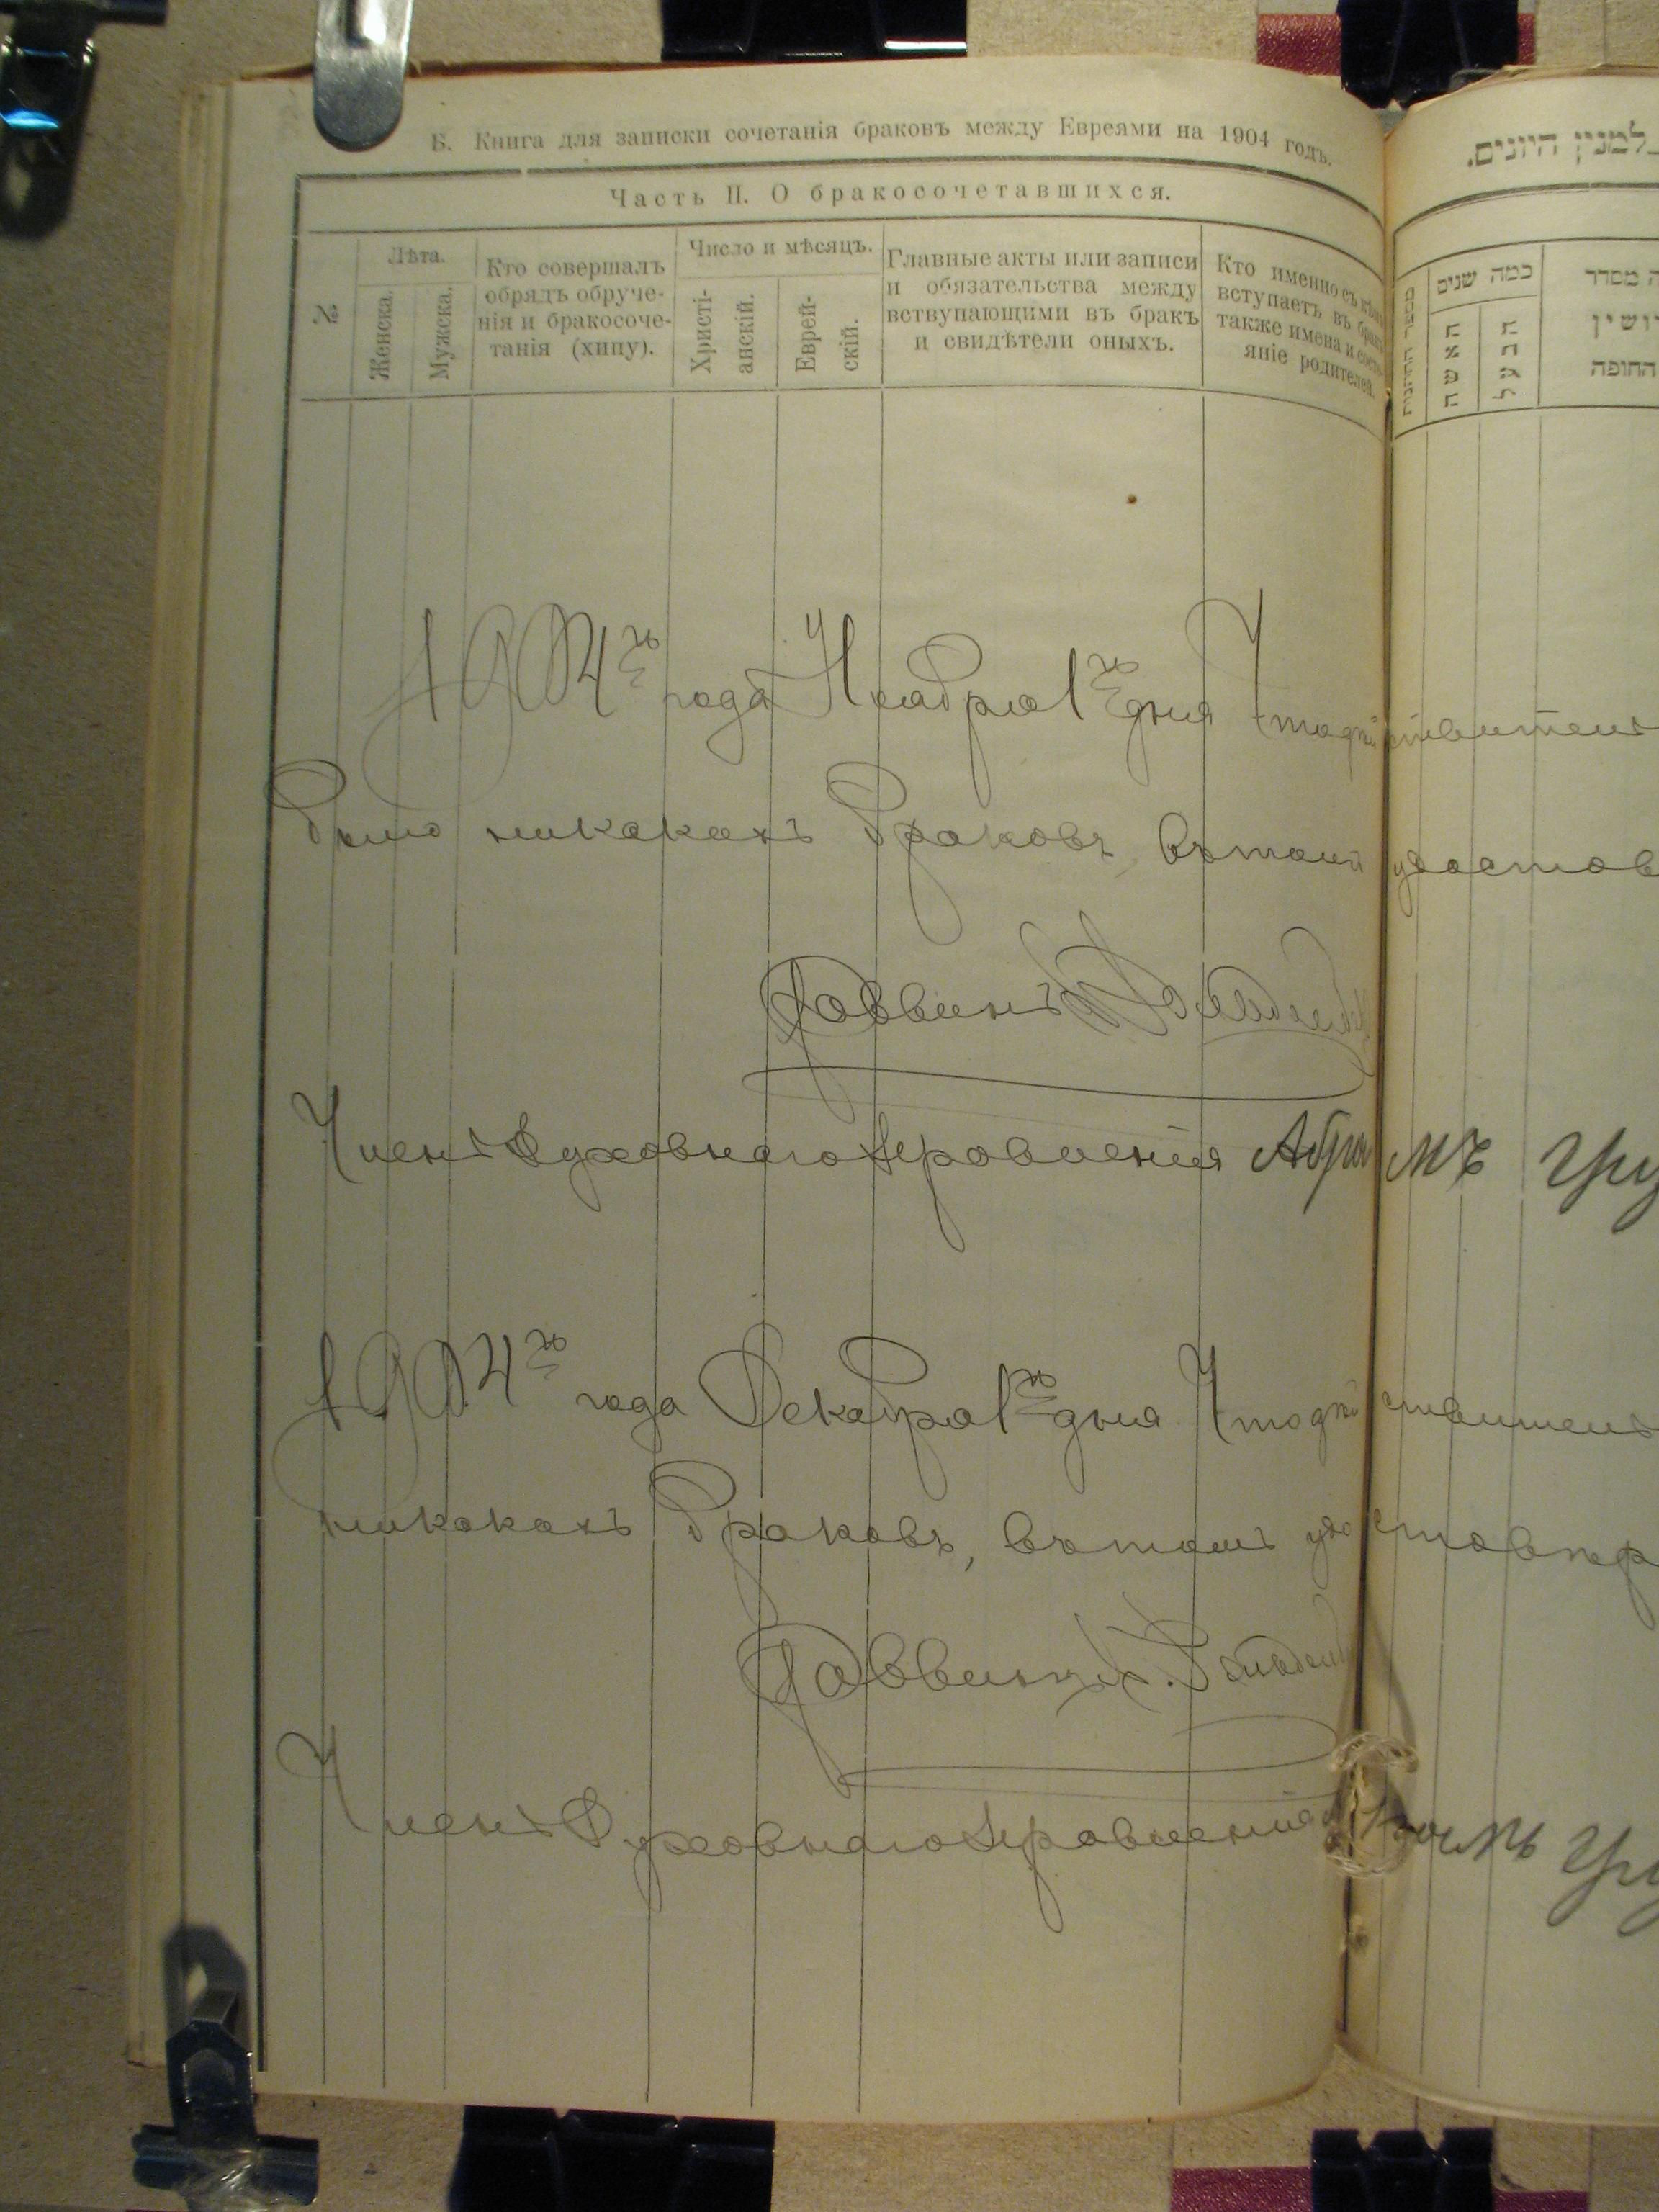 Б. Книга для записки сочетанія браковъ между Евреями на 1904 годъ.
Часть II. О бракосочетавшихся.
№
Лѣта.
Женска.
Мужска.
Кто совершалъ
обрядъ обруче-
нія и бракосоче-
танія (хипу).
Число и мѣсяцъ.
Христі-
анскій.
Еврей-
скій.
Главные акты или записи
и обязательства между
вствупающими въ бракъ
и свидѣтели оныхъ.
Кто именно съ кѣмъ
вступаетъ въ бракъ
также имена и состо-
яніе родителей.
למנין היונים.
כמה שנים
האשה
הבעל
מסדר
החופה
1904го года Ноября 1го дня Что дѣйствительн
было никакихъ браковъ, въ томъ удостов
Раввинъ
Членъ Духовнаго Правленія Абрамъ
1904го года Декабря 1го дня Что дѣйствительн
никакихъ браковъ, въ томъ удостовѣр
Раввинъ
Членъ Духовнаго Правленія